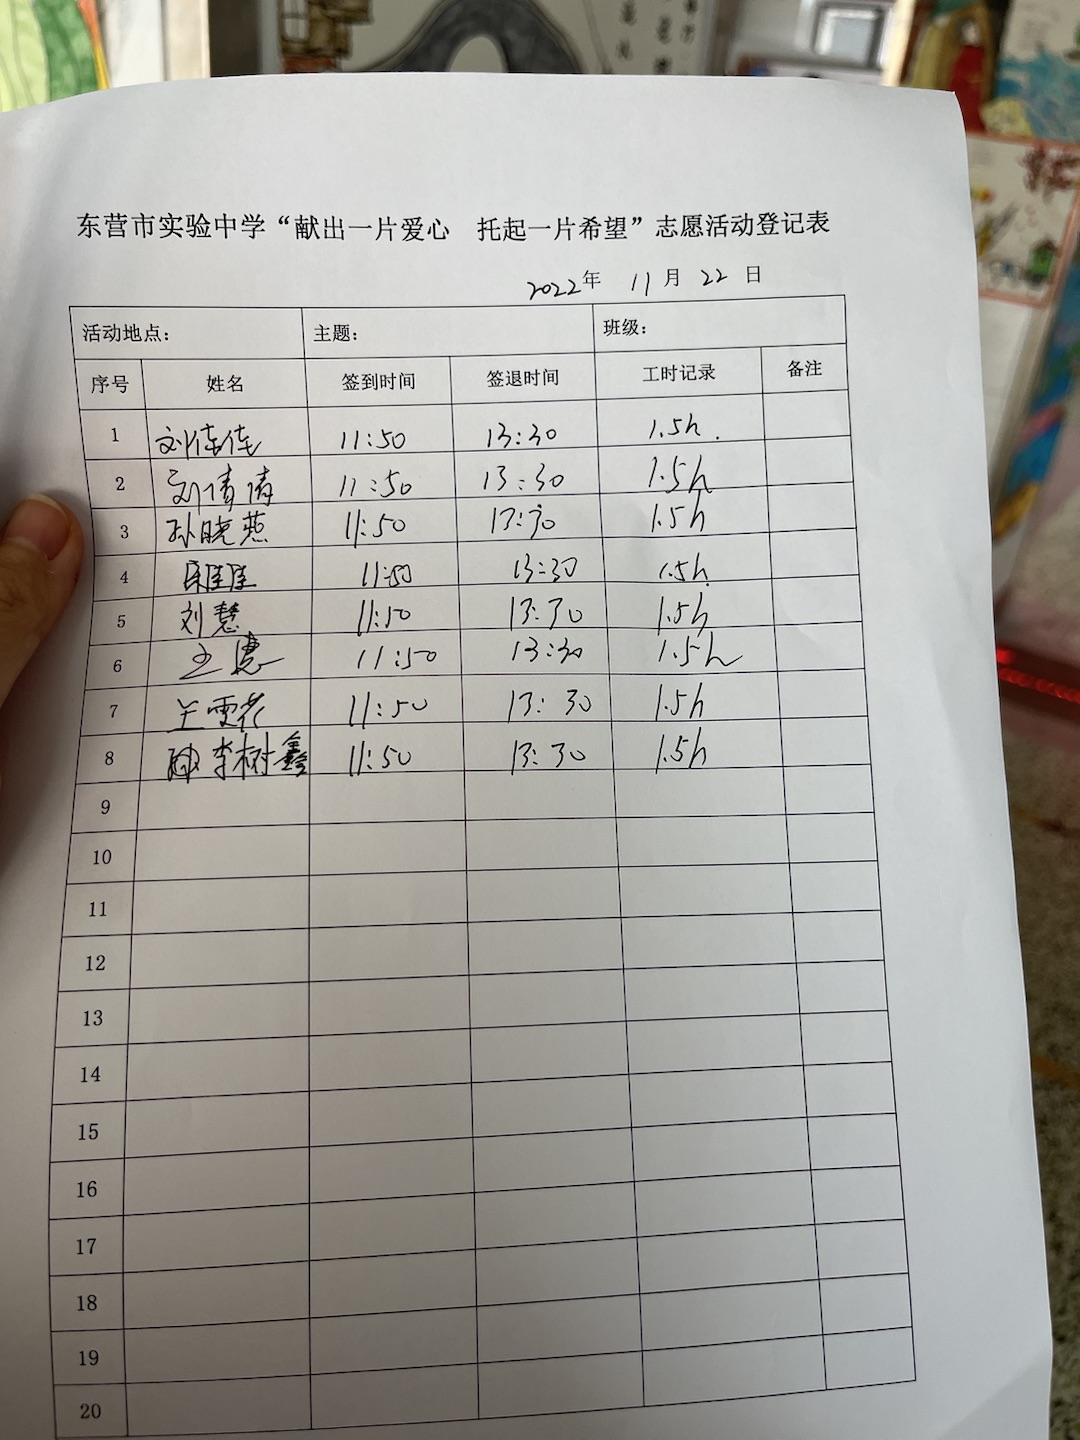 东营市实验中学“献出一片爱心 托起一片希望”志愿活动登记表
2022年 11月 22日
活动地点: 主题: 班级:
序号 姓名 签到时间 签退时间 工时记录 备注
1 刘佳佳 11:50 13:30 1.5h.
2 刘倩倩 11:50 13:30 1.5h
3 孙晓燕 11:50 13:30 1.5h
4 11:50 13:30 1.5h
5 刘慧 11:50 13:30 1.5h
6 王 11:50 13:30 1.5h
7 王雪花 11:50 13:30 1.5h
8 李树鑫 11:50 13:30 1.5h
9
10
11
12
13
14
15
16
17
18
19
20